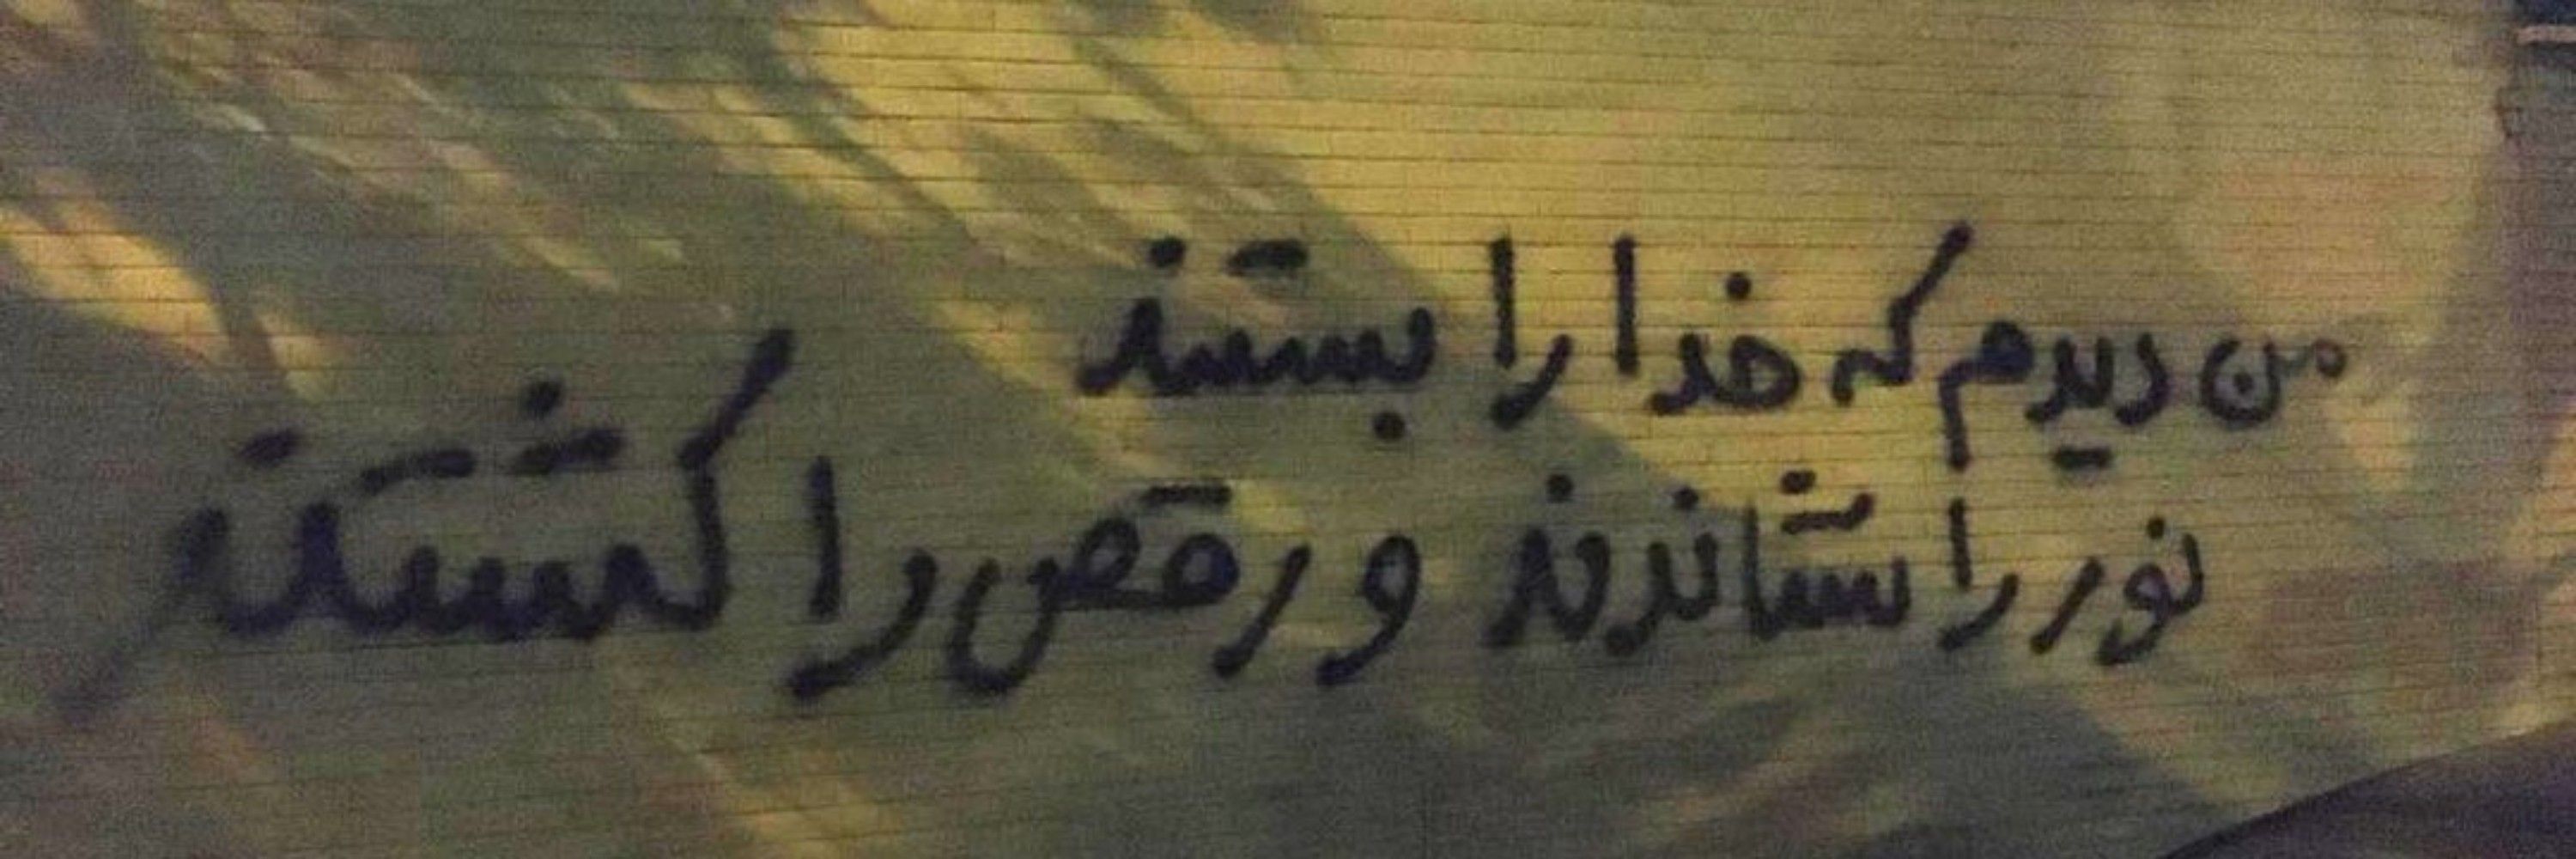 من دیدم که خدا را بستند
نور را شاندند و رقص را کشتند